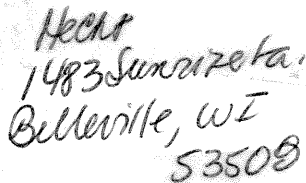 Hecht
1483 Sunrize La.
Belleville, WI
53508